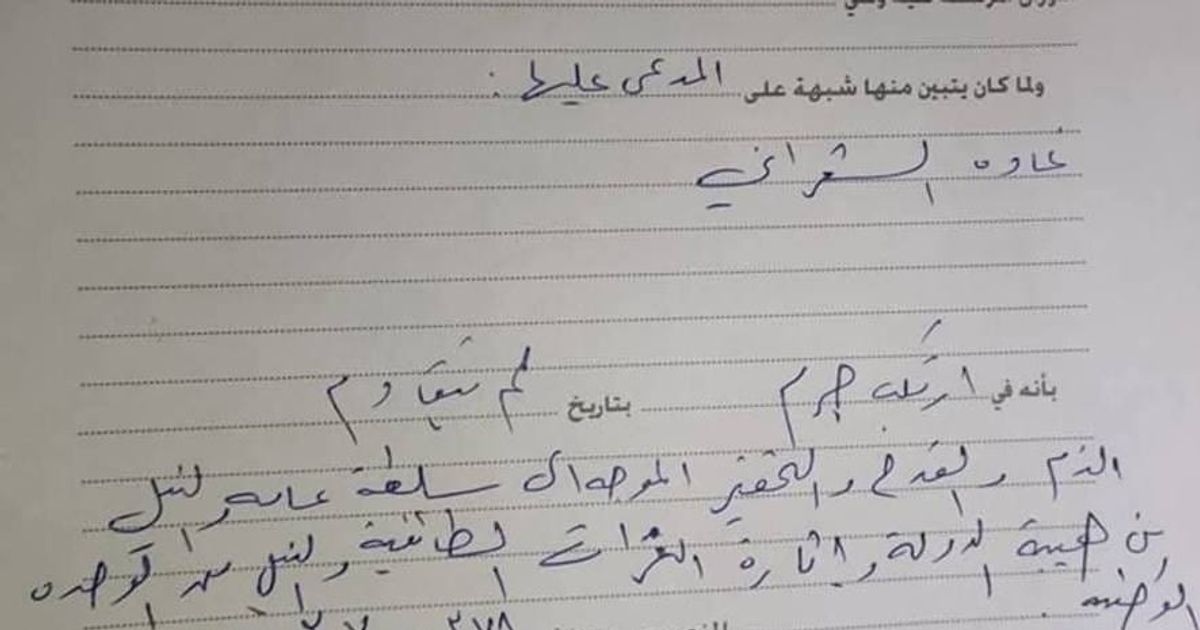 ولما كان يتبين منها شبهة على المدعى عليها :
غادة الشعراني
بأنه في ارتكب جرم بتاريخ لم يتقادم
الذم والقدح والتحقير الموجه الى سلطة عامة والنيل
من هيبة الدولة واثارة النعرات الطائفية والنيل من الوحدة
الوطنية